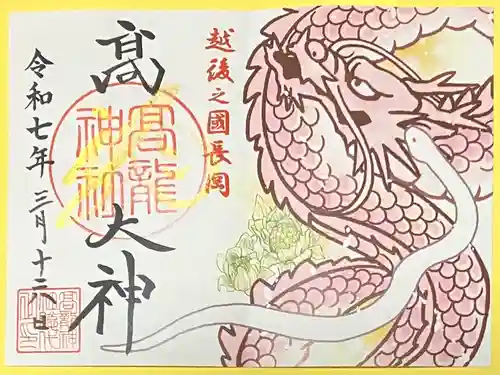 越後之國長岡
髙 大神
高龍
神社
令和七年 三月十六日